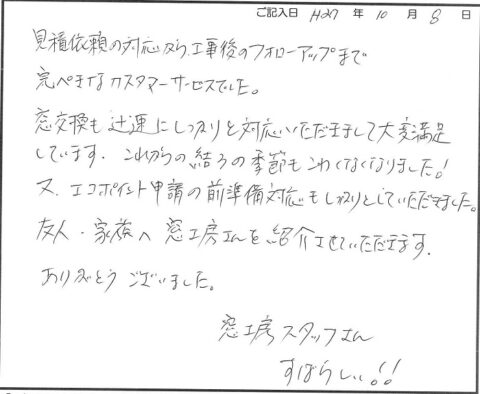 ご記入日 H27 年 10 月 8 日
見積依頼の対応から、工事後のフォローアップまで
完ぺきなカスタマーサービスでした。
窓交換も迅速にしっかりと対応いただきまして大変満足
しています。これからの結ろの季節もこわくなくなりました!
又、エコポイント申請の前準備対応もしっかりとしていただきました。
友人・家族へ窓工房さんを紹介させていただきます。
ありがとうございました。
窓工房スタッフさん
すばらしい!!